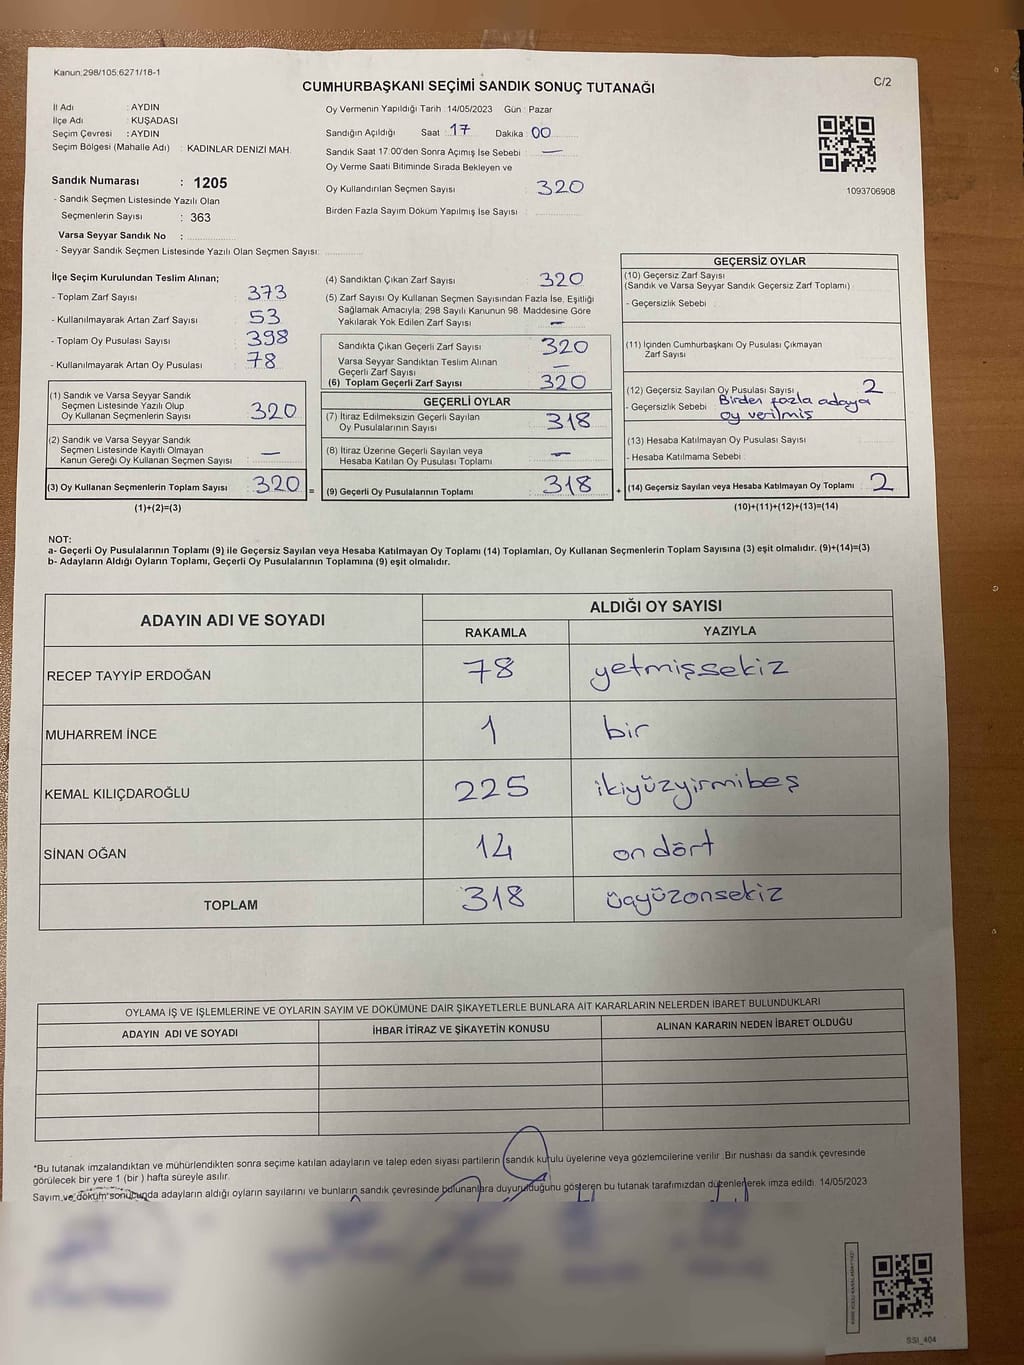 Kanun:298/105:6271/18-1
CUMHURBAŞKANI SEÇİMİ SANDIK SONUÇ TUTANAĞI
C/2
İl Adı : AYDIN
İlçe Adı : KUŞADASI
Seçim Çevresi : AYDIN
Seçim Bölgesi (Mahalle Adı) : KADINLAR DENIZI MAH.
Sandık Numarası : 1205
- Sandık Seçmen Listesinde Yazılı Olan
Seçmenlerin Sayısı : 363
Varsa Seyyar Sandık No :
- Seyyar Sandık Seçmen Listesinde Yazılı Olan Seçmen Sayısı:
Oy Vermenin Yapıldığı Tarih : 14/05/2023 Gün : Pazar
Sandığın Açıldığı Saat : 17 Dakika : 00
Sandık Saat 17:00'den Sonra Açımış İse Sebebi : —
Oy Verme Saati Bitiminde Sırada Bekleyen ve
Oy Kullandırılan Seçmen Sayısı : 320
Birden Fazla Sayım Döküm Yapılmış İse Sayısı :
1093706908
İlçe Seçim Kurulundan Teslim Alınan;
- Toplam Zarf Sayısı : 373
- Kullanılmayarak Artan Zarf Sayısı : 53
- Toplam Oy Pusulası Sayısı : 398
- Kullanılmayarak Artan Oy Pusulası : 78
(1) Sandık ve Varsa Seyyar Sandık
Seçmen Listesinde Yazılı Olup
Oy Kullanan Seçmenlerin Sayısı : 320
(2) Sandık ve Varsa Seyyar Sandık
Seçmen Listesinde Kayıtlı Olmayan
Kanun Gereği Oy Kullanan Seçmen Sayısı : —
(3) Oy Kullanan Seçmenlerin Toplam Sayısı : 320 =
(1)+(2)=(3)
(4) Sandıktan Çıkan Zarf Sayısı : 320
(5) Zarf Sayısı Oy Kullanan Seçmen Sayısından Fazla İse, Eşitliği
Sağlamak Amacıyla; 298 Sayılı Kanunun 98. Maddesine Göre
Yakılarak Yok Edilen Zarf Sayısı : —
Sandıkta Çıkan Geçerli Zarf Sayısı : 320
Varsa Seyyar Sandıktan Teslim Alınan
Geçerli Zarf Sayısı : —
(6) Toplam Geçerli Zarf Sayısı : 320
GEÇERLİ OYLAR
(7) İtiraz Edilmeksizin Geçerli Sayılan
Oy Pusulalarının Sayısı : 318
(8) İtiraz Üzerine Geçerli Sayılan veya
Hesaba Katılan Oy Pusulası Toplamı : —
(9) Geçerli Oy Pusulalarının Toplamı : 318 +
GEÇERSİZ OYLAR
(10) Geçersiz Zarf Sayısı
(Sandık ve Varsa Seyyar Sandık Geçersiz Zarf Toplamı) :
- Geçersizlik Sebebi :
(11) İçinden Cumhurbaşkanı Oy Pusulası Çıkmayan
Zarf Sayısı :
(12) Geçersiz Sayılan Oy Pusulası Sayısı : 2
- Geçersizlik Sebebi : Birden fazla adaya
oy verilmiş
(13) Hesaba Katılmayan Oy Pusulası Sayısı :
- Hesaba Katılmama Sebebi :
(14) Geçersiz Sayılan veya Hesaba Katılmayan Oy Toplamı : 2
(10)+(11)+(12)+(13)=(14)
NOT:
a- Geçerli Oy Pusulalarının Toplamı (9) ile Geçersiz Sayılan veya Hesaba Katılmayan Oy Toplamı (14) Toplamları, Oy Kullanan Seçmenlerin Toplam Sayısına (3) eşit olmalıdır. (9)+(14)=(3)
b- Adayların Aldığı Oyların Toplamı, Geçerli Oy Pusulalarının Toplamına (9) eşit olmalıdır.
ADAYIN ADI VE SOYADI
ALDIĞI OY SAYISI
RAKAMLA YAZIYLA
RECEP TAYYİP ERDOĞAN 78 yetmişsekiz
MUHARREM İNCE 1 bir
KEMAL KILIÇDAROĞLU 225 ikiyüzyirmibeş
SİNAN OĞAN 14 on dört
TOPLAM 318 üçyüzonsekiz
OYLAMA İŞ VE İŞLEMLERİNE VE OYLARIN SAYIM VE DÖKÜMÜNE DAİR ŞİKAYETLERLE BUNLARA AİT KARARLARIN NELERDEN İBARET BULUNDUKLARI
ADAYIN ADI VE SOYADI İHBAR İTİRAZ VE ŞİKAYETİN KONUSU ALINAN KARARIN NEDEN İBARET OLDUĞU
*Bu tutanak imzalandıktan ve mühürlendikten sonra seçime katılan adayların ve talep eden siyasi partilerin sandık kurulu üyelerine veya gözlemcilerine verilir. Bir nushası da sandık çevresinde
görülecek bir yere 1 (bir ) hafta süreyle asılır.
Sayım ve döküm sonucunda adayların aldığı oyların sayılarını ve bunların sandık çevresinde bulunanlara duyurulduğunu gösteren bu tutanak tarafımızdan düzenlenerek imza edildi. 14/05/2023
SSI_404